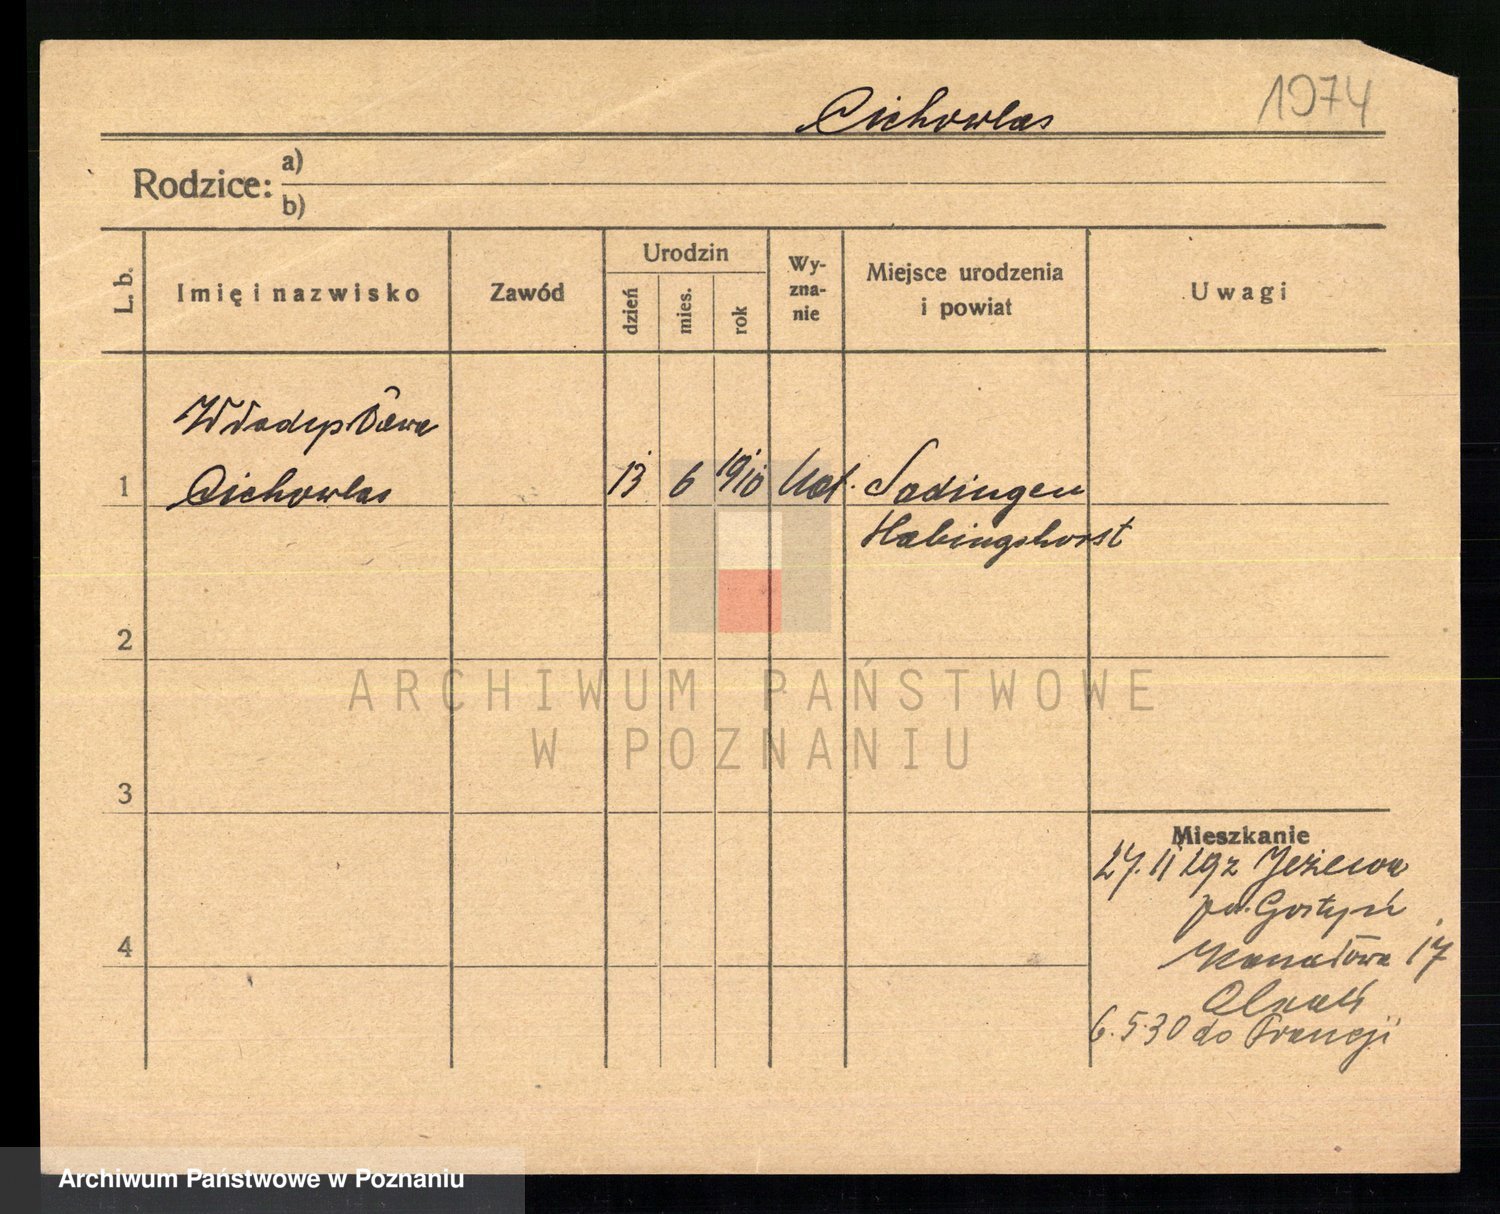 Cichowlas
1974
Rodzice: a)
b)
L. b.
Imię i nazwisko
Zawód
Urodzin
dzień
mies.
rok
Wy-
zna-
nie
Miejsce urodzenia
i powiat
Uwagi
Władysława
1 Cichowlas 13 6 1910 kat. Sodingen
Habingshorst
2
3
4
Mieszkanie
27.11 29 z Jeżewa
pow. Gostyń
Kanałowa 17
6.5.30 do Francji
ARCHIWUM PAŃSTWOWE
W POZNANIU
Archiwum Państwowe w Poznaniu